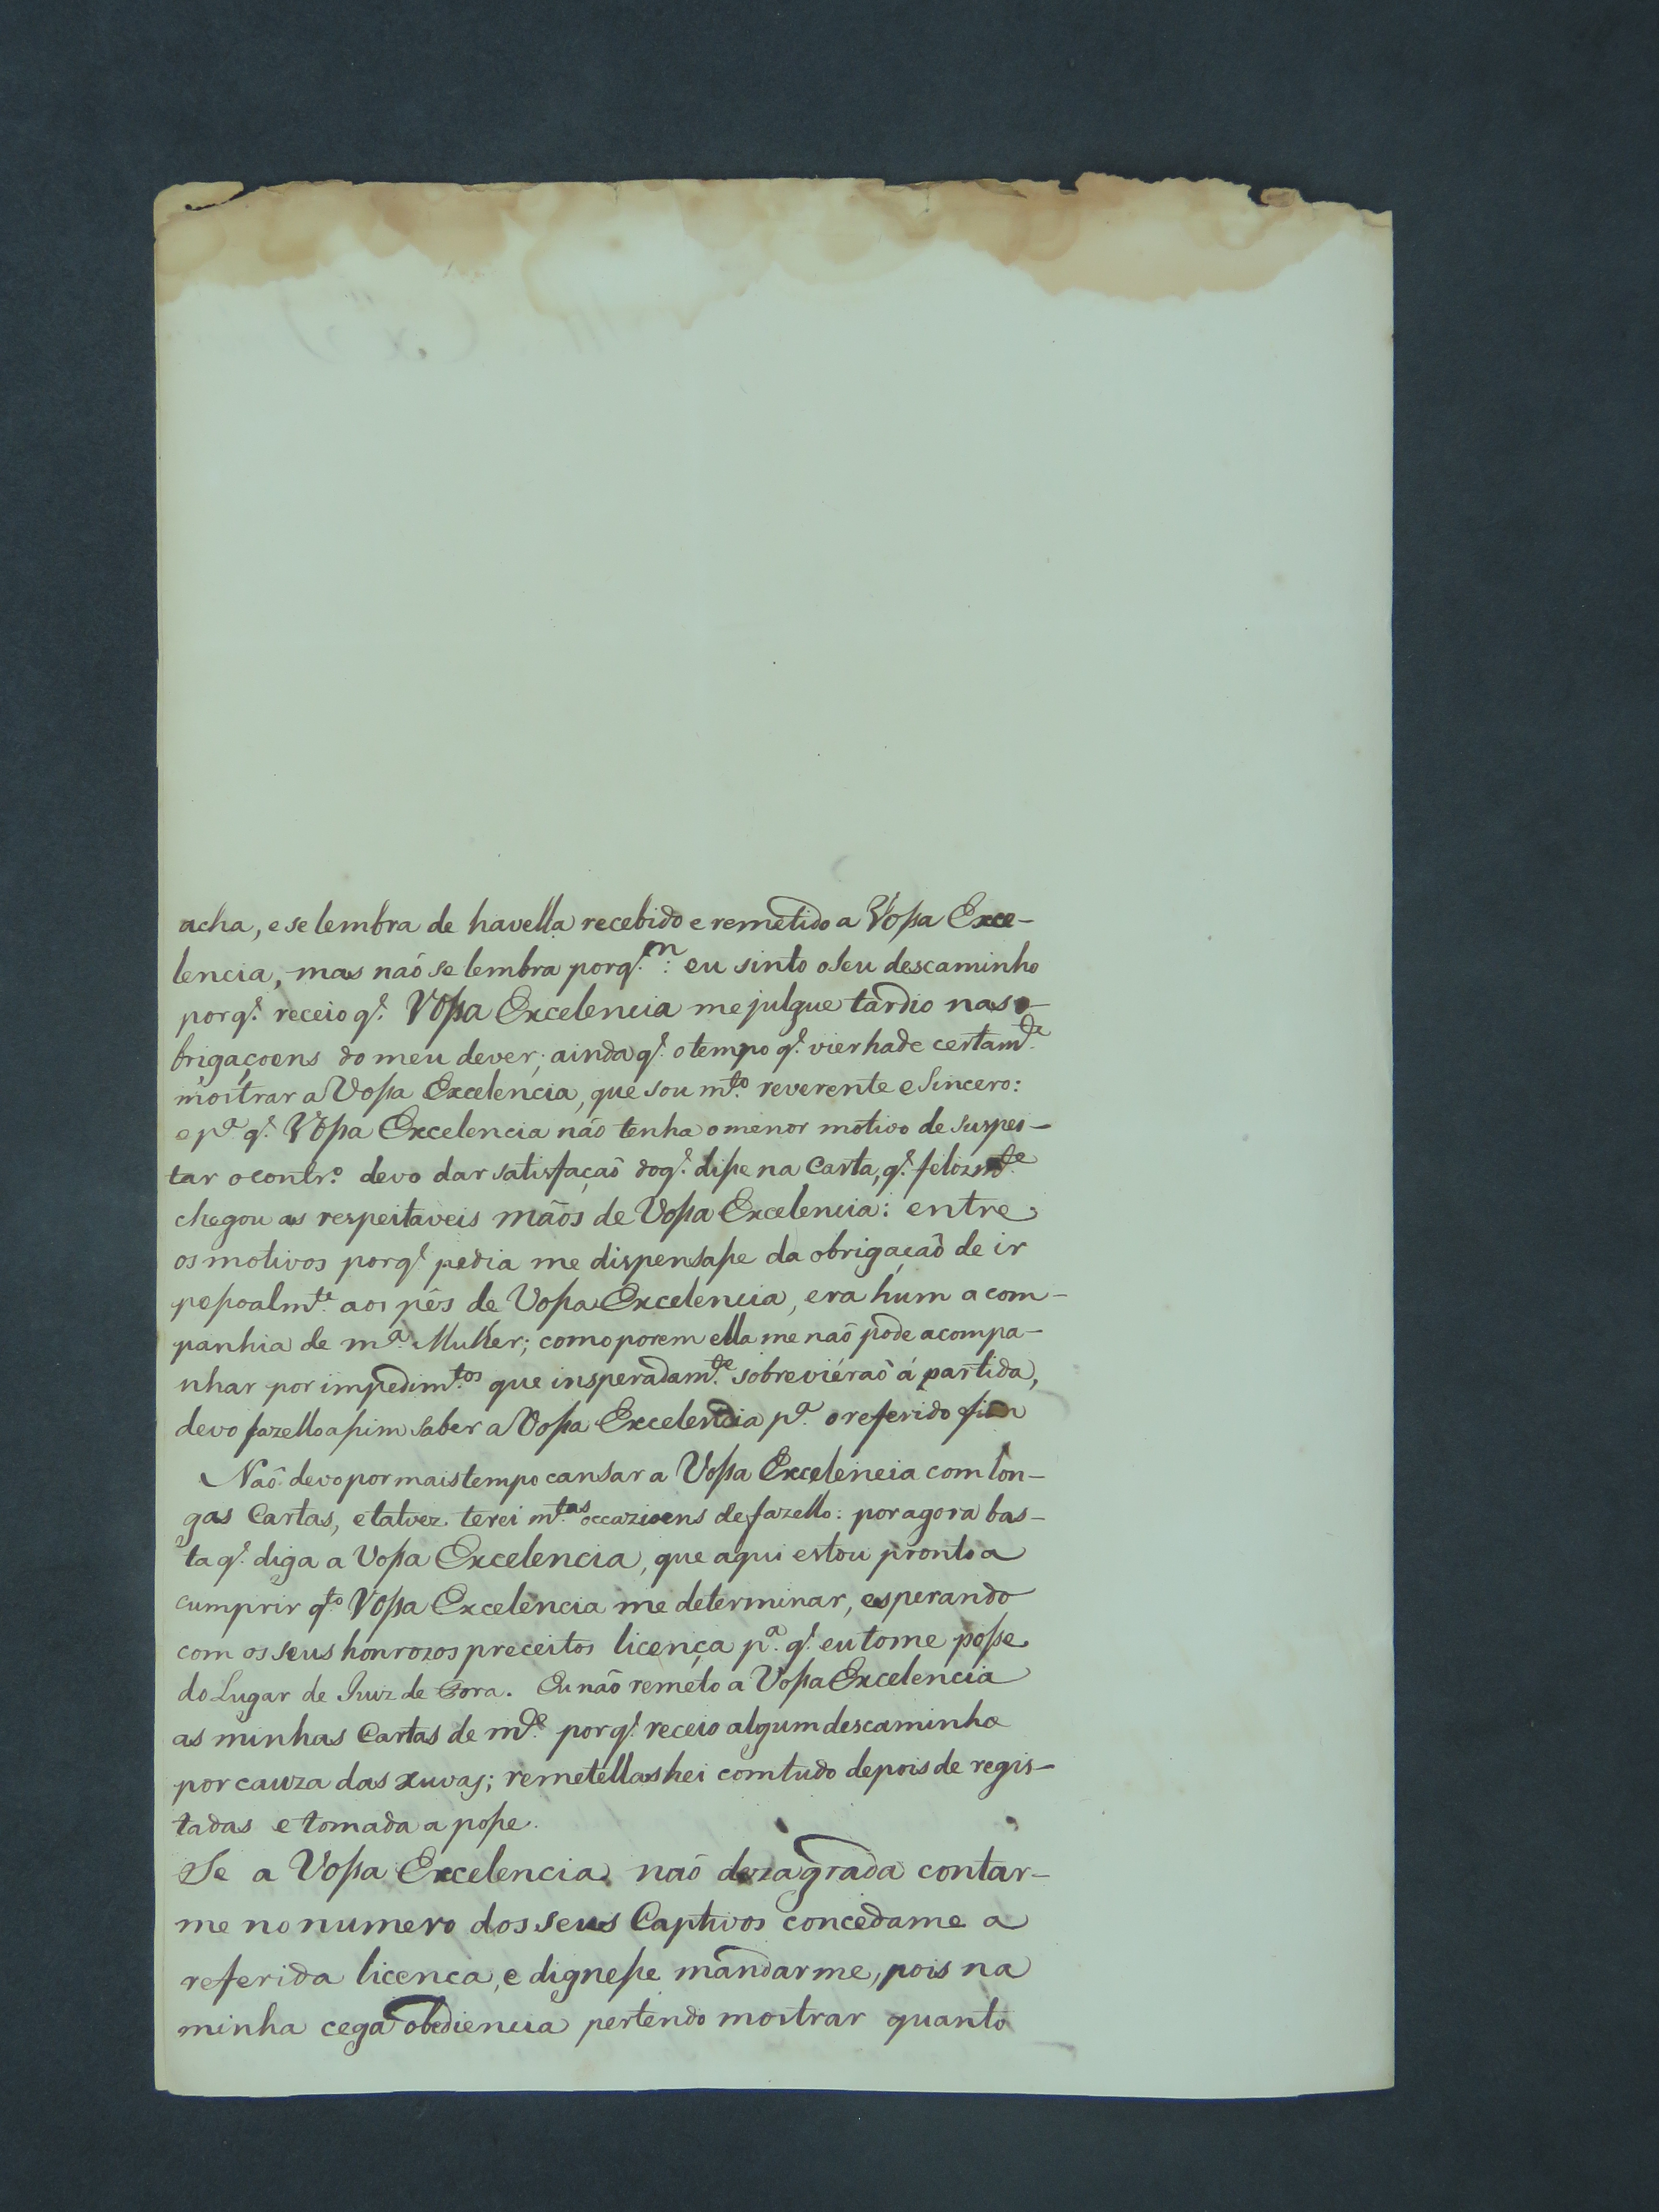 acha, e se lembra de havella recebido e remetido a Vossa Exce-
lencia, mas naõ se lembra porq.m: eu sinto o seu descaminho
porq.' receio q.' Vossa Excelencia me julgue tardio nas o-
brigaçoens do meu dever; ainda q.' o tempo q.' vier hade certam.te
mostrar a Vossa Excelencia, que sou m.to reverente e sincero:
e p.a q.' Vossa Excelencia não tenha o menor motivo de suspei-
tar o contr.o devo dar satisfaçaõ do q.' disse na Carta, q.' felizm.te
chegou as respeitaveis mãos de Vossa Excelencia: entre
os motivos porq.' pedia me dispensasse da obrigaçaõ de ir
pessoalm.te aos pês de Vossa Excelencia, era hum a com-
panhia de m.a Mulher; como porem ella me naõ pode acompa-
nhar por impedim.tos que insperadam.te sobreviéraõ á partida,
devo fazello assim saber a Vossa Excelencia p.a o referido fim
Naõ devo por mais tempo cansar a Vossa Excelencia com lon-
gas Cartas, e talvez terei m.tas occazioens de fazello: por agora bas-
ta q.' diga a Vossa Excelencia, que aqui estou pronto a
cumprir q.to Vossa Excelencia me determinar, esperando
com os seus honrozos preceitos licença p.a q.' eu tome posse
do Lugar de Juiz de Fora. Eu não remeto a Vossa Excelencia
as minhas Cartas de m.ce porq.' receio algum descaminho
por cauza das xuvas; remetellashei comtudo depois de regis-
tadas e tomada a posse.
Se a Vossa Excelencia naõ dezagrada contar-
me no numero dos seus Captivos concedame a
referida licenca, e dignesse mandarme, pois na
minha cega obediencia pertendo mostrar quanto